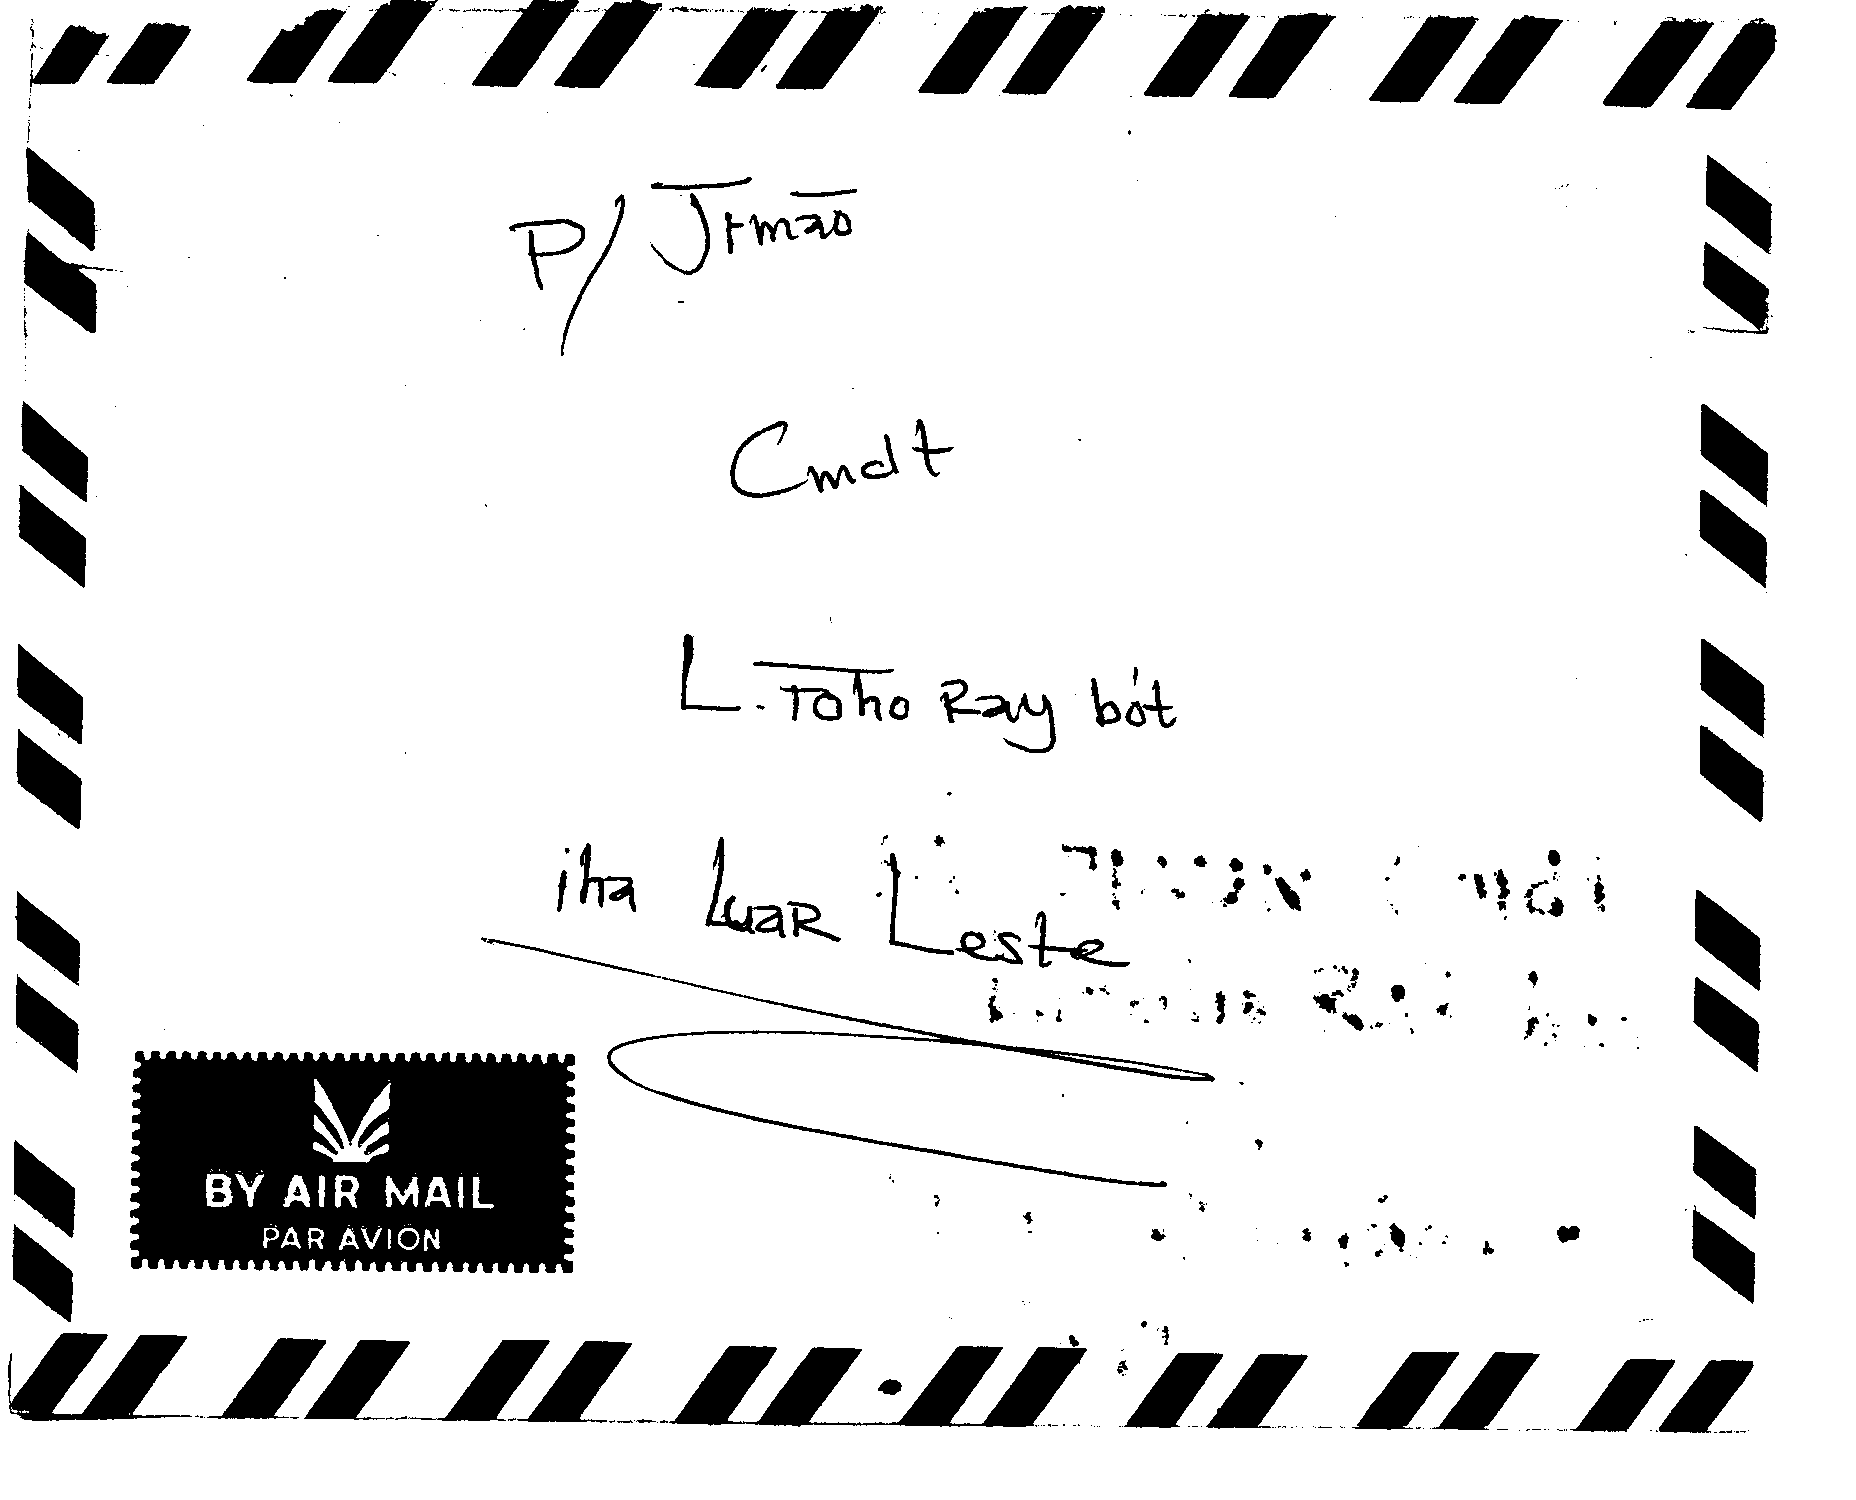 P/ Irmão
Cmdt
L. Toho Ray bót
iha Luar Leste
BY AIR MAIL
PAR AVION